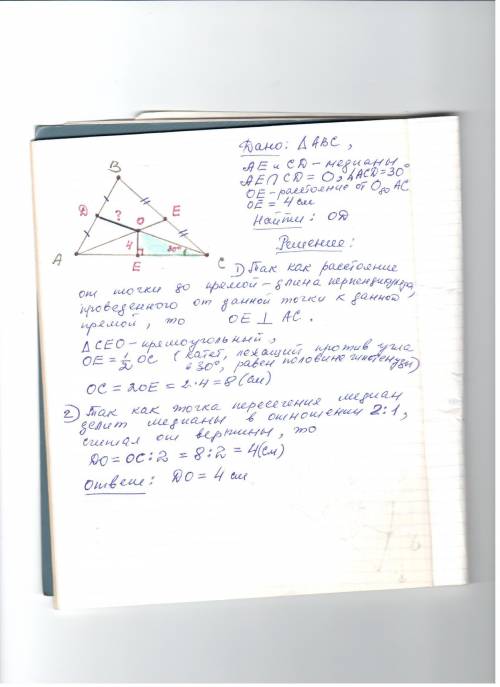 Дано: ΔABC,
AE и CD – медианы
AE∩CD = O, ∠ACD=30°
OE – расстояние от O до AC
OE = 4 см
Найти: OD
B
D
?
O
E
4
30°
A
E
C
Решение:
1) Так как расстояние
от точки до прямой – длина перпендикуляра,
проведенного от данной точки к данной
прямой, то OE ⊥ AC.
ΔCEO – прямоугольный,
OE = 1/2 OC (катет, лежащий против угла
в 30°, равен половине гипотенузы)
OC = 2OE = 2·4 = 8 (см)
2) Так как точка пересечения медиан
делит медианы в отношении 2:1,
считая от вершины, то
DO = OC:2 = 8:2 = 4(см)
Ответ: DO = 4 см